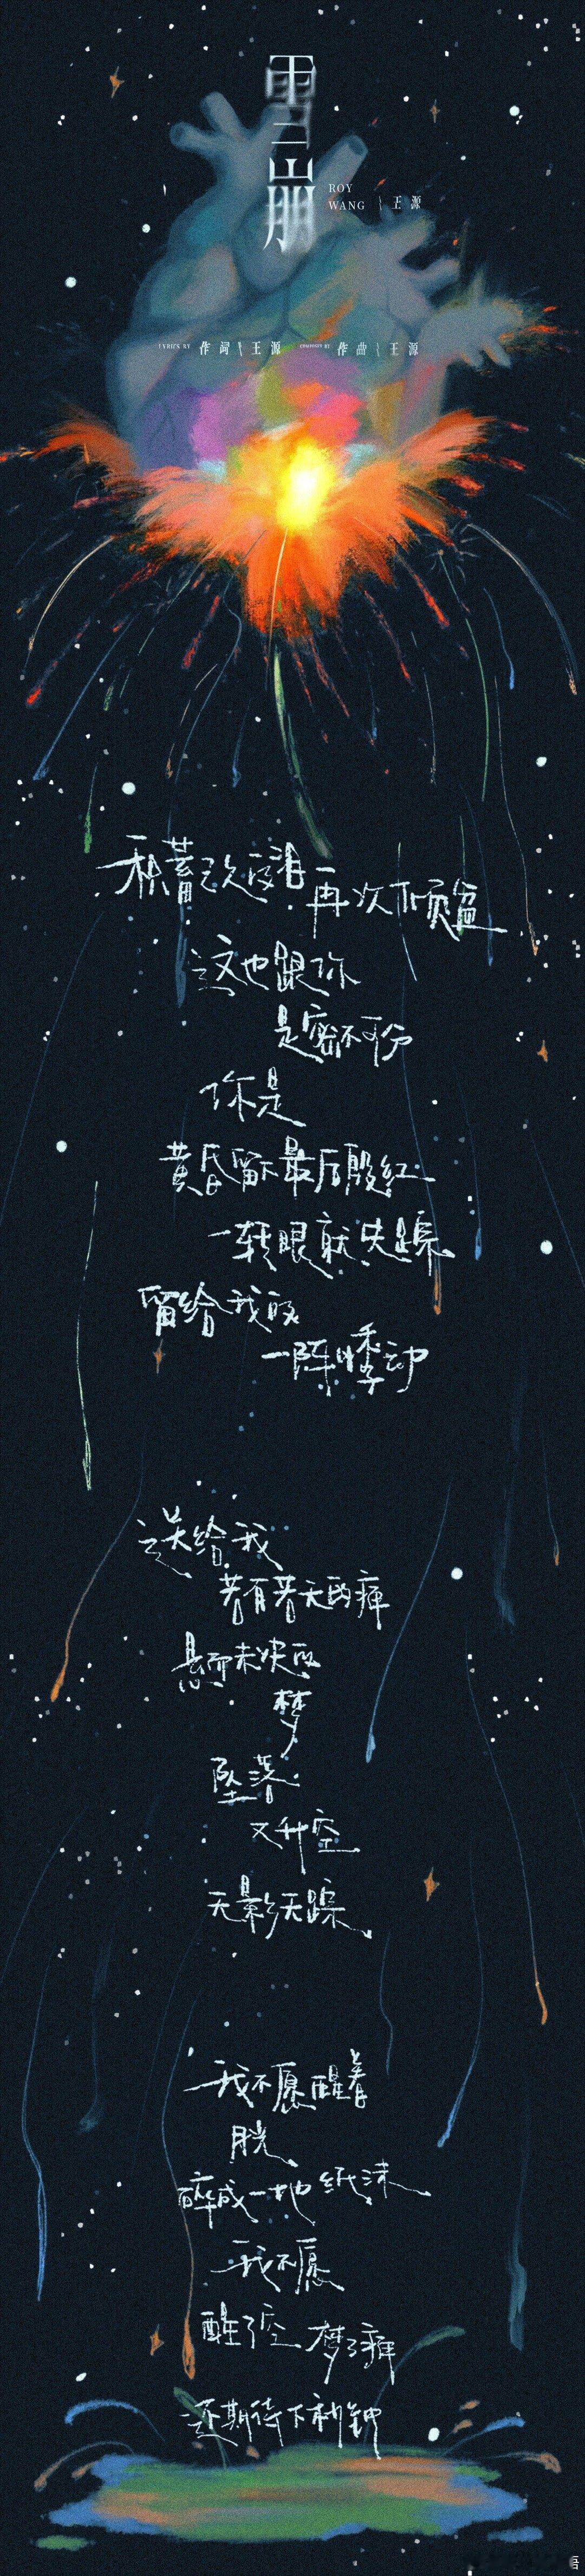 雪崩
ROY
WANG \ 王源
LYRICS BY 作词 \ 王源 COMPOSED BY 作曲 \ 王源
积蓄已久的泪再次倾盆
这也跟你
是密不可分
你是
黄昏留下最后殷红
一转眼就失踪
留给我的
一阵悸动
送给我
若有若无的痛
悬而未决的
梦
坠落
又升空
无影无踪
我不愿醒着
胱
碎成一地纸沫
我不愿
醒了空 梦了痛
还期待下秒钟